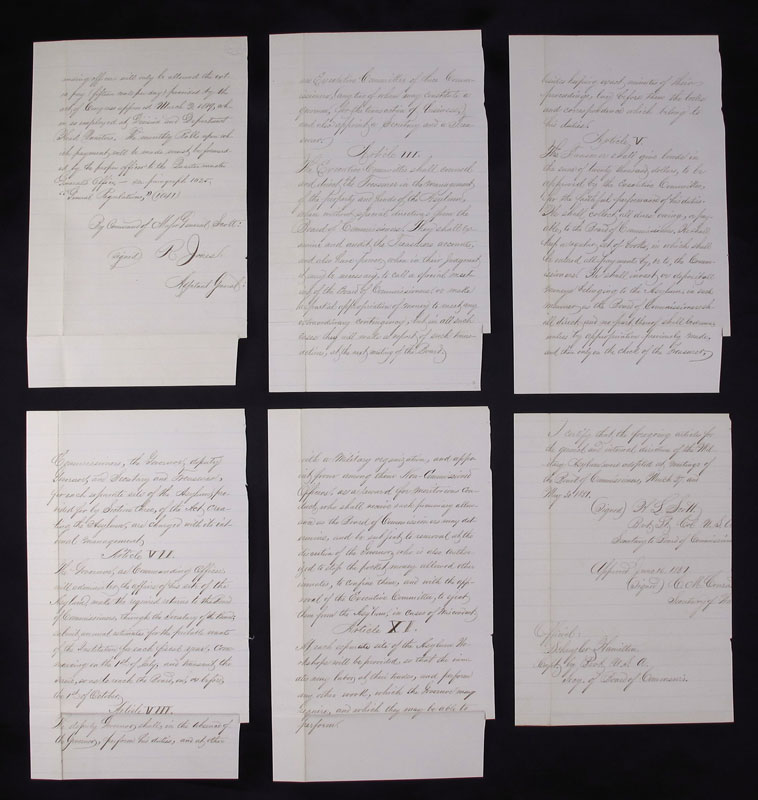 ending officer will only be allowed the ext-
ra pay (fifteen cents per day) promised by the
act of Congress approved March 2, 1819, when
so employed at Division and Department
Head Quarters. The monthly Rolls upon whi-
ch payments will be made must be forward-
ed by the proper officer to the Quarter master
General's Office — see paragraph 1025,
"General Regulations," (1041)
By Command of Major General Scott:
(signed) R. Jones
Adjutant General.
an Executive Committee of three Comm-
issioners, any two of whom may constitute a
quorum, for the transaction of business,
and also appoint a Secretary and a Trea-
surer.
Article III.
The Executive Committee shall counsel
and direct the Treasurer in the management
of the property and funds of the Asylum,
when without special directions from the
Board of Commissioners. They shall ex-
amine and audit the Treasurers accounts,
and also have power, when in their judgment
deemed necessary, to call a special meet-
ing of the Board of Commissioners: or make
a partial appropriation of money to meet any
extraordinary contingency, but in all such
cases they will make a report of such trans-
actions, at the next meeting of the Board.
besides keeping exact minutes of their
proceedings, lay before them the books
and correspondence which belong to
his duties.
Article V.
The Treasurer shall give bonds in
the sum of twenty thousand dollars, to be
approved by the Executive Committee,
for the faithful performance of his duties.
He shall collect all dues owing, or pay-
able, to the Board of Commissioners. He shall
keep a regular set of books, in which shall
be entered all payments by, or to, the Comm-
issioners. He shall invest, or deposit all
moneys belonging to the Asylum in such
manner, as the Board of Commissioners sh-
all direct, and no part thereof shall be drawn
unless by appropriation previously made,
and then only on the check of the Treasurer.
Commissioners, the Governor, deputy
Governor, and Secretary and Treasurer,
for each separate site of the Asylum, pro-
vided for by Section three, of the Act, crea-
ting the Asylum, are charged with its int-
ernal management.
Article VII.
The Governor, as Commanding Officer
will administer the affairs of his site of the
Asylum, make the required returns to the Board
of Commissioners, through the Secretary of the Board,
submit annual estimates for the probable wants
of the Institution for each fiscal year, Com-
mencing on the 1st of July, and transmit the
same, so as to reach the Board, on, or before,
the 1st of October.
Article VIII.
The deputy Governor, shall, in the absence of
the Governor, perform his duties, and at other
with a Military organization, and appo-
int, from among them Non-Commissioned
Officers, as a reward for meritorious con-
duct, who shall receive such pecuniary allow-
ance as the Board of Commissioners may det-
ermine, and be subject to removal at the
discretion of the Governor, who is also author-
ized to stop the pocket money allowed other
inmates, to confine them, and with the app-
roval of the Executive Committee, to eject
them from the Asylum, in cases of misconduct.
Article XI.
At each separate site of the Asylum Wo-
rkshops will be provided, so that the inm-
ates may labor at their trades, and perform
any other work, which the Governor may
require, and which they may be able to
perform.
I certify that the foregoing articles for
the general and internal direction of the Mil-
itary Asylum were adopted at meetings of
the Board of Commissioners, March 27, and
May 31, 1851.
(Signed) H. L. Scott
Bvt. Lt. Col. U.S.
Secretary to Board of Commissioners
Approved June 1851
(Signed) C. M. Conrad
Secretary of
Official:
Schuyler Hamilton
Capt. by Brevt. U.S.A.
Secy. of Board of Commissrs.